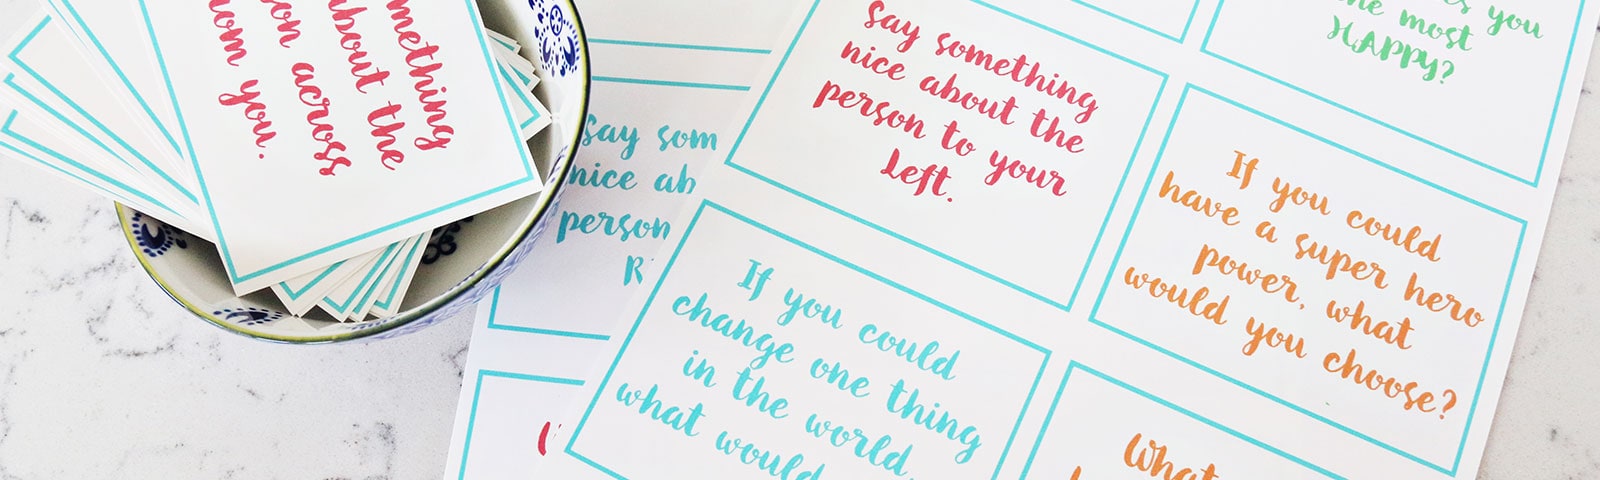 mething
about the
on across
om you.
Say som
nice ab
person
R
Say something
nice about the
person to your
Left.
you
he most
HAPPY?
If you could
have a super hero
power, what
would you choose?
If you could
change one thing
in the world,
what would
What